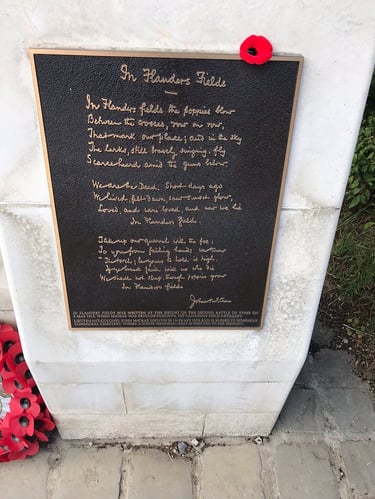 In Flanders Fields
In Flanders fields the poppies blow
Between the crosses, row on row,
That mark our place; and in the sky
The larks, still bravely singing, fly
Scarce heard amid the guns below.
We are the Dead. Short days ago
We lived, felt dawn, saw sunset glow,
Loved, and were loved, and now we lie
In Flanders fields.
Take up our quarrel with the foe;
To you from failing hands, we throw
The torch; be yours to hold it high.
If ye break faith with us who die
We shall not sleep, though poppies grow
In Flanders fields
John McCrae
IN FLANDERS FIELDS WAS WRITTEN AT THE HEIGHT OF THE SECOND BATTLE OF YPRES ON
LIEUTENANT-COLONEL JOHN McCRAE DIED ON 28 JANUARY 1918 AND IS BURIED IN WIMEREUX
COMMUNAL CEMETERY,